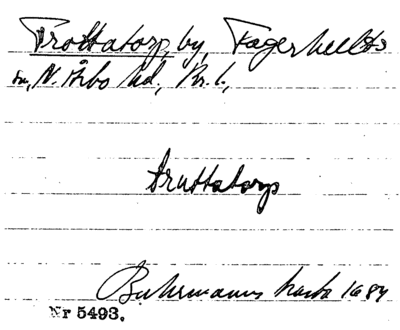 Trottatorp, by, Fagerhults
sn, N. Åsbo hd, Kr. l.,
truttatorp
Buhrmanns karta 1684
Nr 5493.